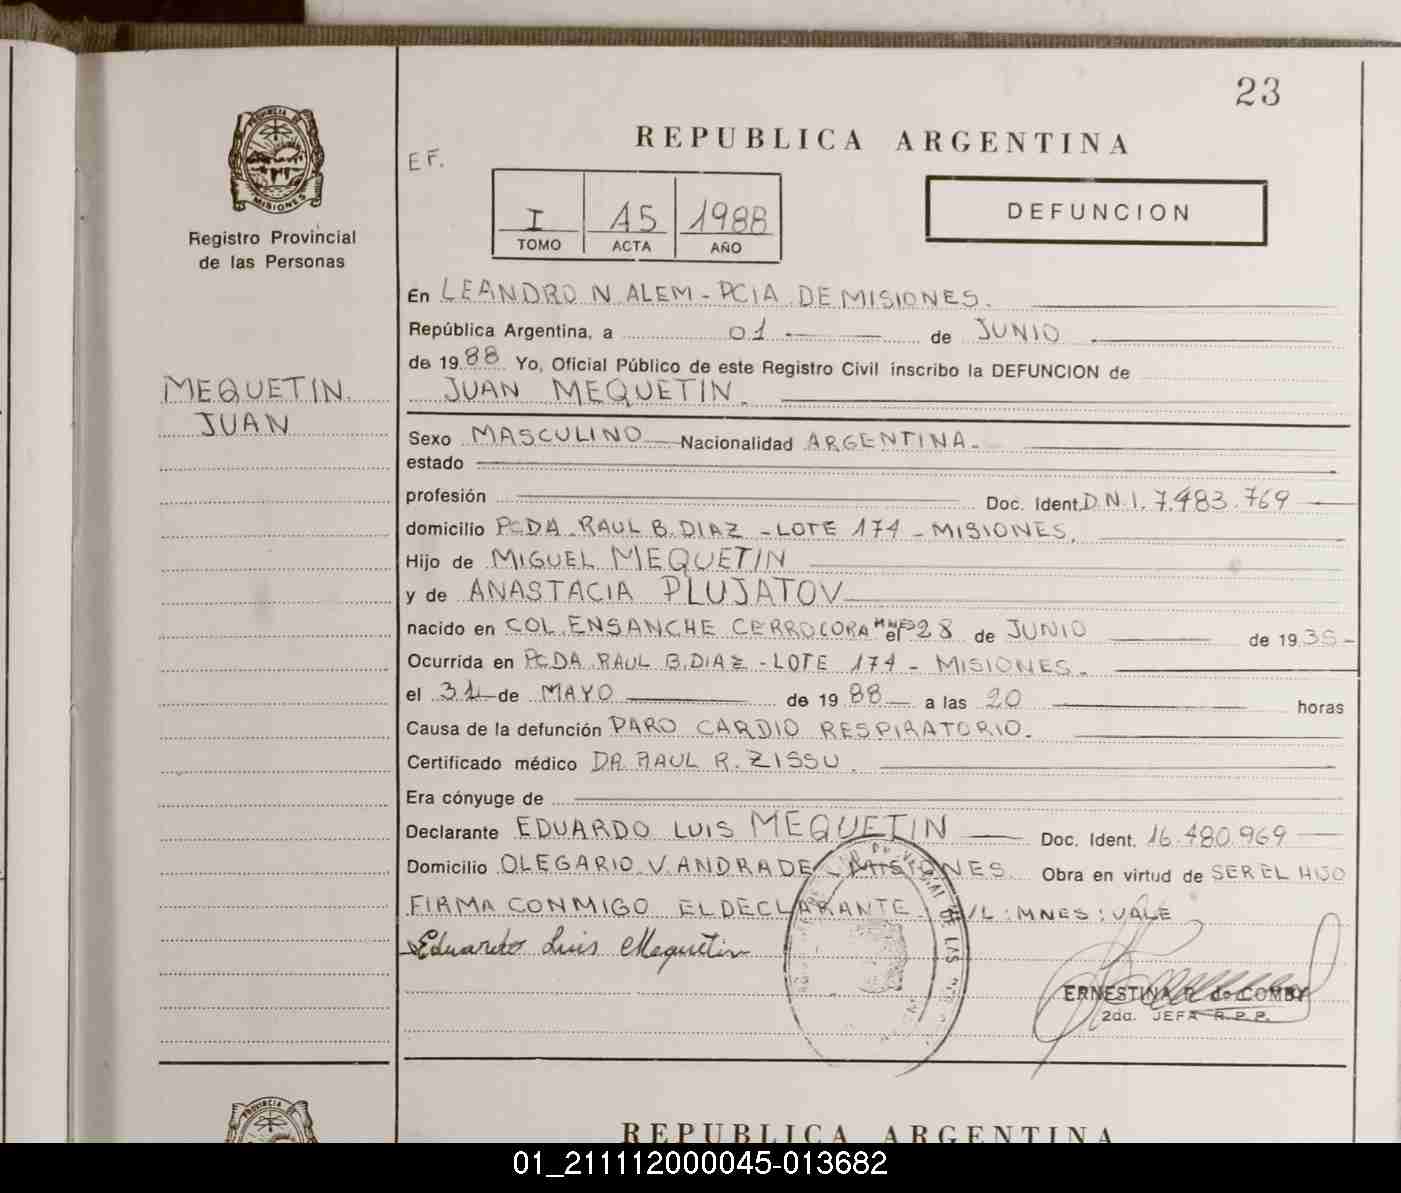 23
REPUBLICA ARGENTINA
PROVINCIA DE
MISIONES
Registro Provincial
de las Personas
E F.
I A5 1988
TOMO ACTA AÑO
DEFUNCION
En LEANDRO N. ALEM - PCIA. DE MISIONES.
República Argentina, a 01 de JUNIO
de 1988 Yo, Oficial Público de este Registro Civil inscribo la DEFUNCION de
JUAN MEQUETIN.
MEQUETIN.
JUAN
Sexo MASCULINO Nacionalidad ARGENTINA.
estado
profesión Doc. Ident. D.N.I. 7.483.769
domicilio PCDA. RAUL B. DIAZ - LOTE 174 - MISIONES.
Hijo de MIGUEL MEQUETIN
y de ANASTACIA PLUJATOV
nacido en COL. ENSANCHE CERRO CORA MNES el 28 de JUNIO de 1935-
Ocurrida en PCDA RAUL B. DIAZ - LOTE 174 - MISIONES.
el 31 de MAYO de 1988 a las 20 horas
Causa de la defunción PARO CARDIO RESPIRATORIO.
Certificado médico DR. RAUL R. ZISSU.
Era cónyuge de
Declarante EDUARDO LUIS MEQUETIN Doc. Ident. 16.480.969
Domicilio OLEGARIO V. ANDRADE - MISIONES. Obra en virtud de SER EL HIJO
FIRMA CONMIGO EL DECLARANTE. E/L: MNES: VALE
Eduardo Luis Mequetin
ERNESTINA R. de COMBY
2da. JEFA R.P.P.
PROVINCIA DE
REPUBLICA ARGENTINA
01_211112000045-013682